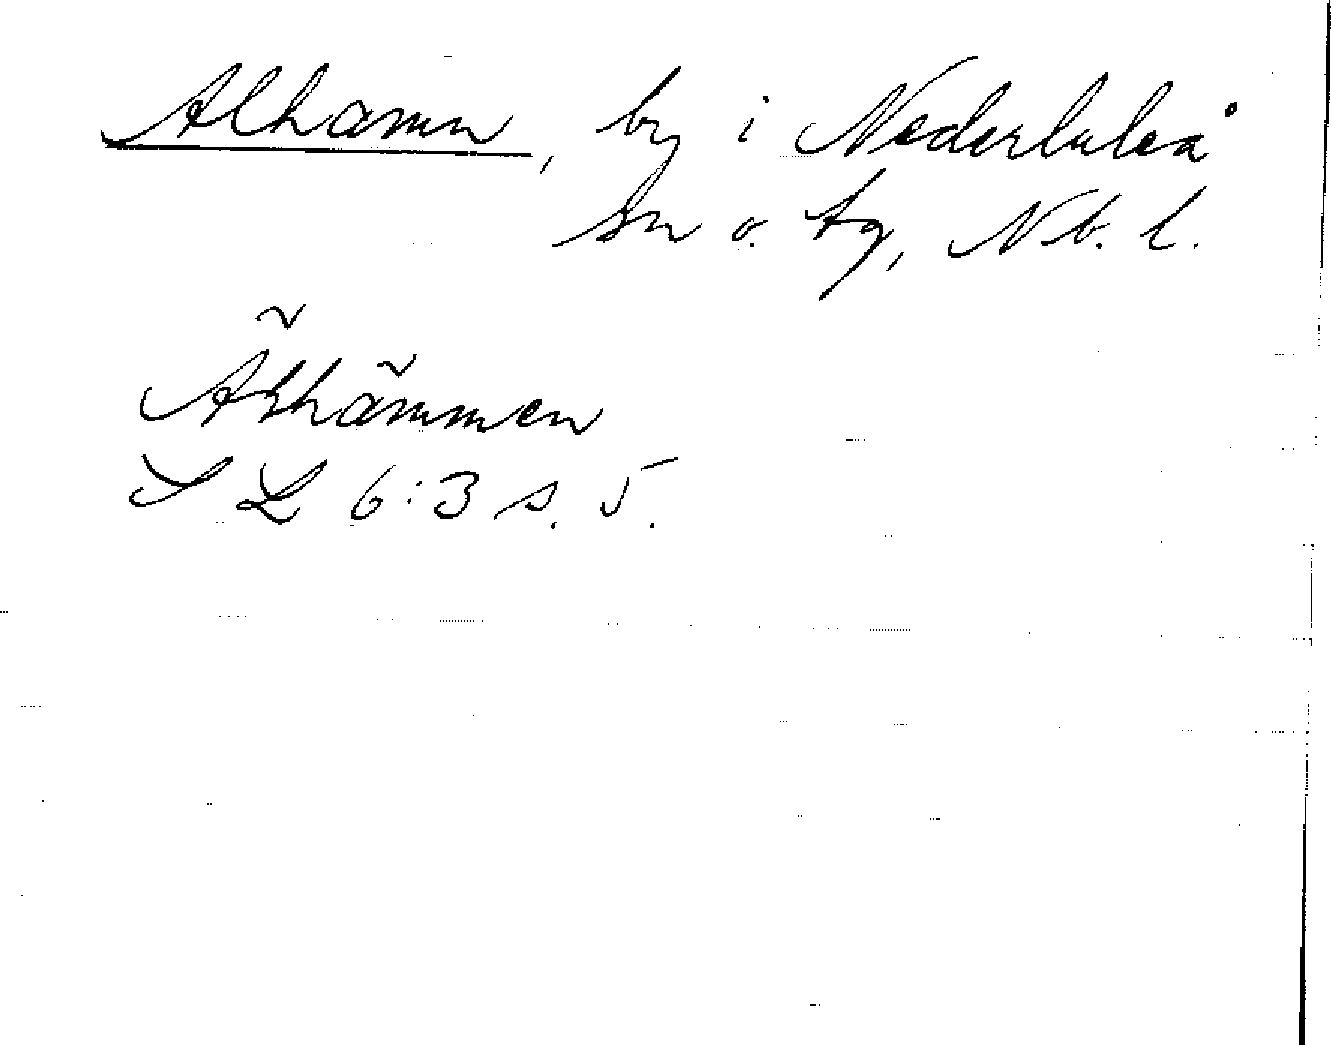 Alhamn, by i Nederluleå
sn o. tg, Nb. l.
S L 6:3 s. 5.